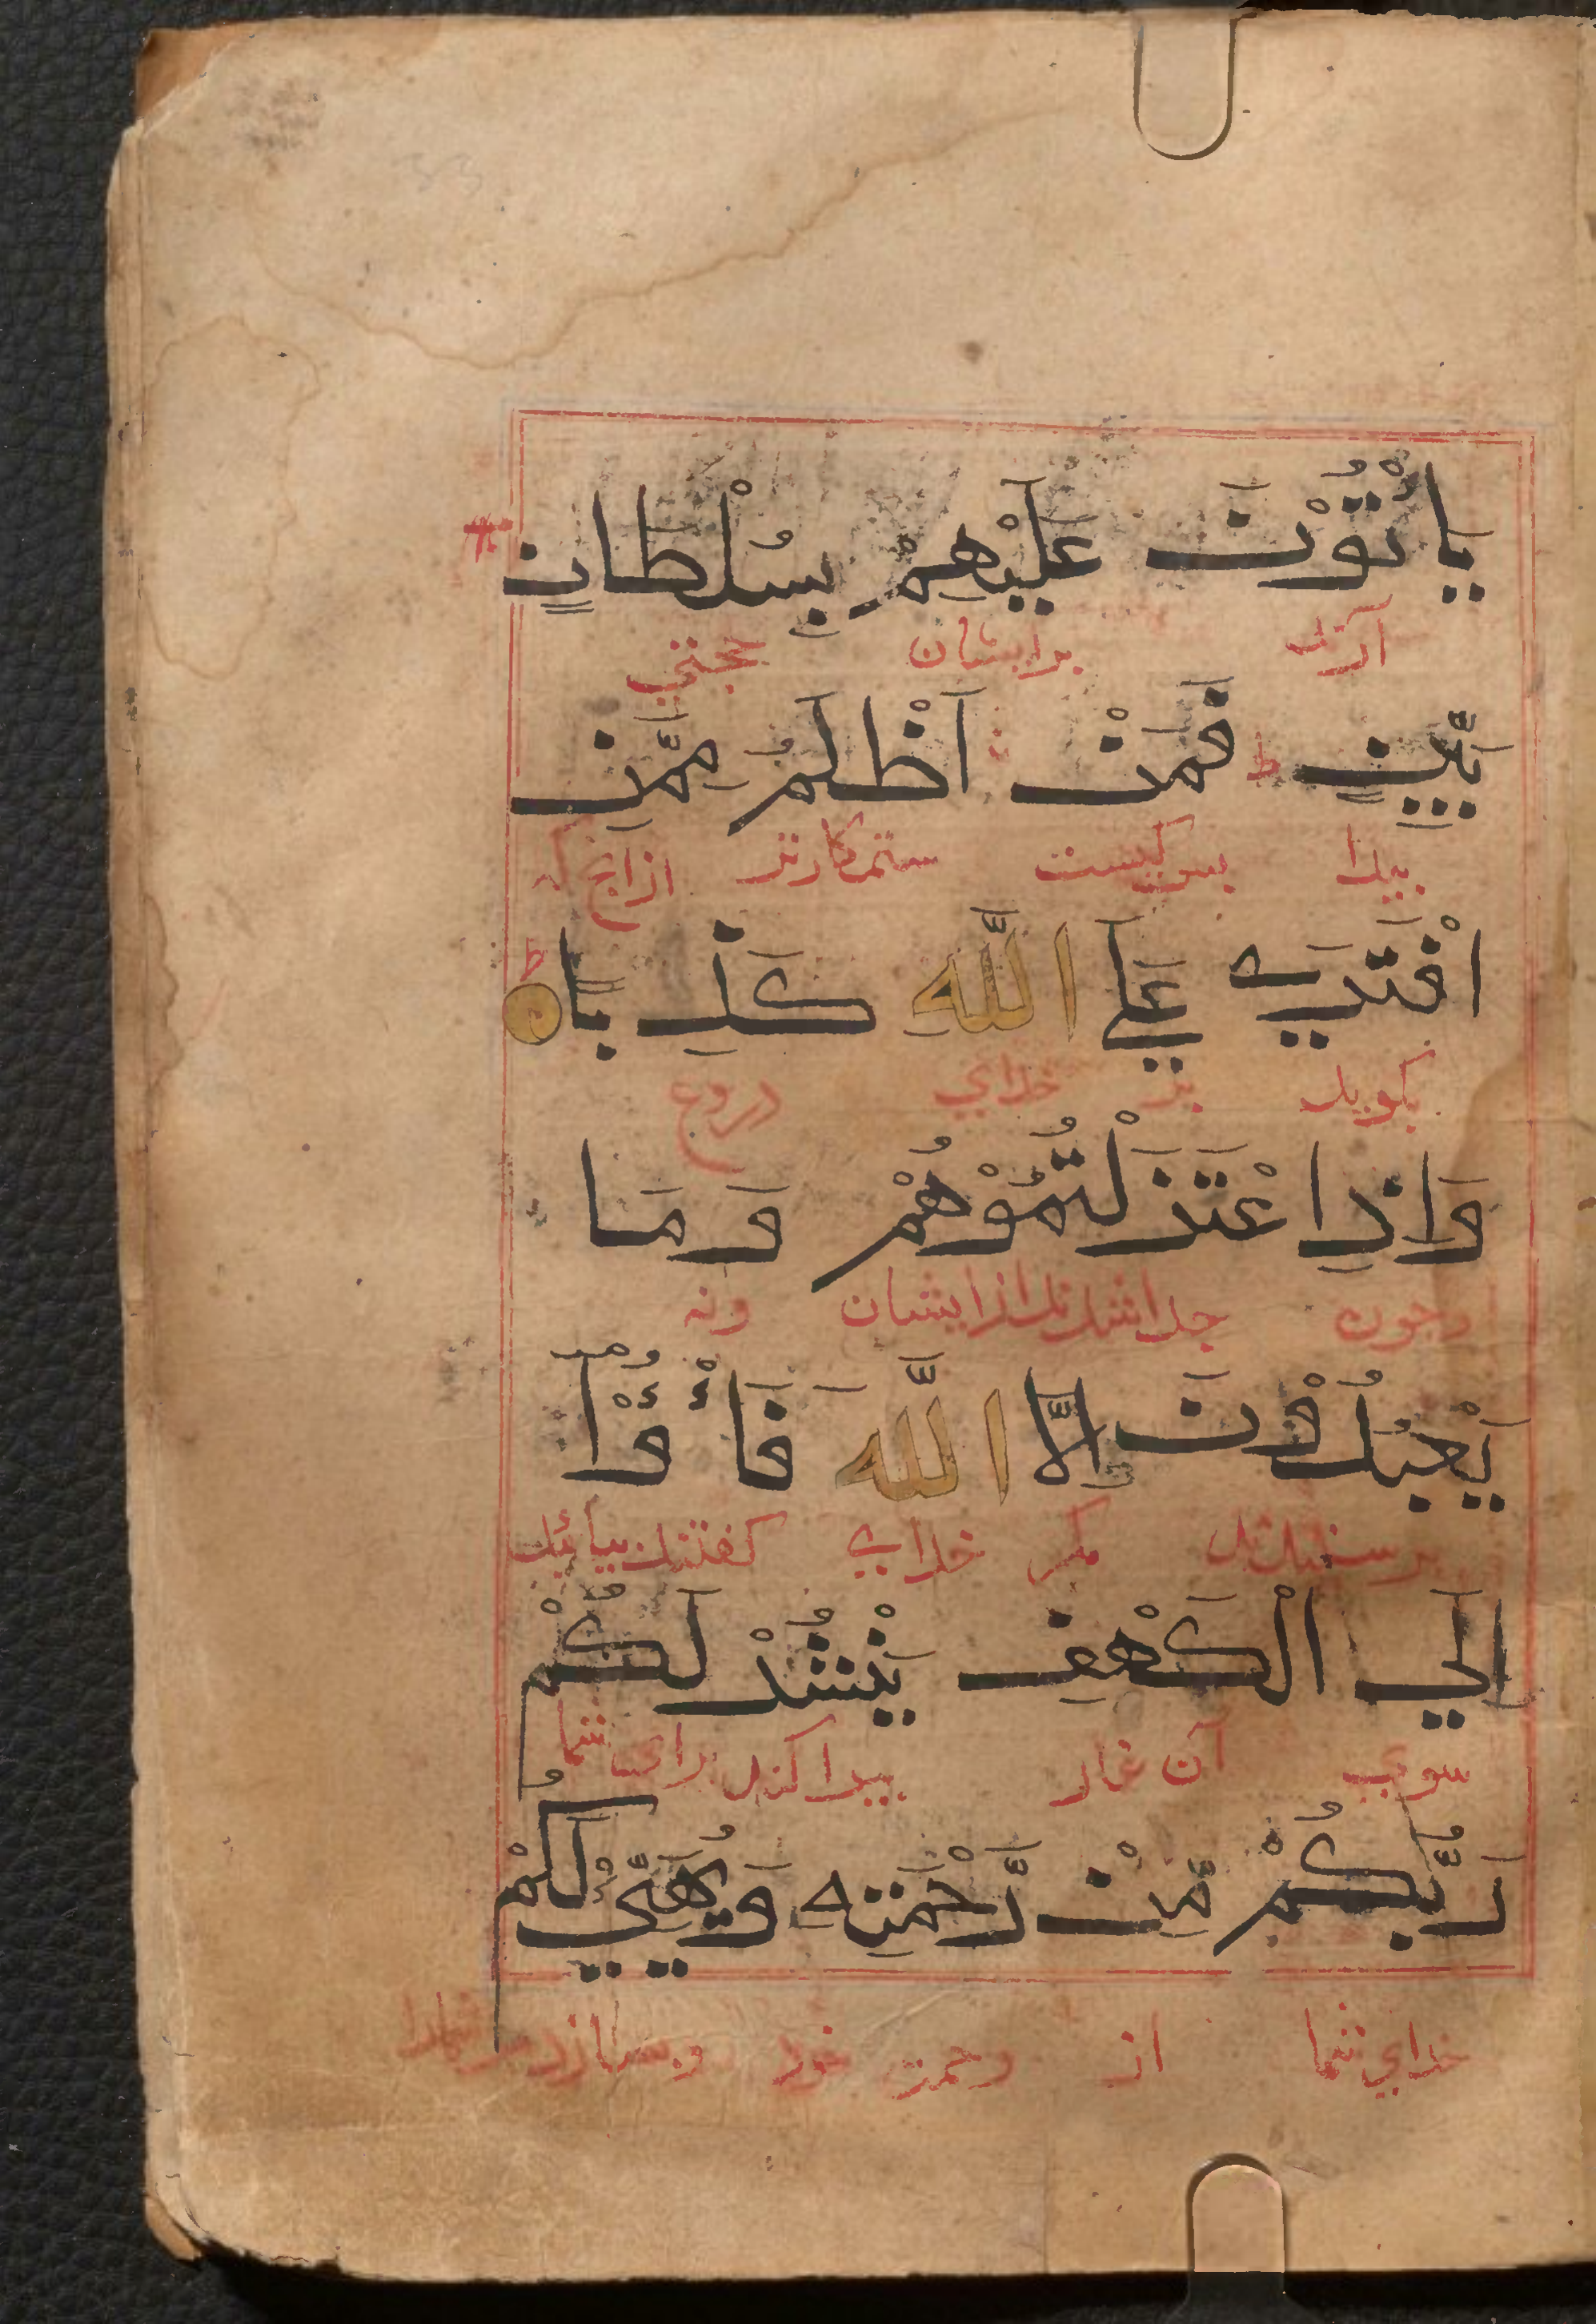 يَاْتُوْنَ عَلَيْهِمْ بِسُلْطَانٍ
آرند برایشان حجتي
بَيِّنٍ ط فَمَنْ اَظْلَمُ مِمَّنِ
بيدا بس كيست ستمكارتر از انج كه
افْتَرَي عَلَي اللَّهِ كَذِبًا ط
بكويد بر خداي دروغ
وَاِذِ اعْتَزَلْتُمُوْهُمْ وَمَا
وجون جدا شدند از ايشان ونه
يَعْبُدُوْنَ اِلَّا اللَّهَ فَأْوُوْا
برستيدند مكر خداي كفتند بيائيد
اِلَي الْكَهْفِ يَنْشُرْ لَكُمْ
سوي آن غار بيدا كند براى شما
رَبُّكُمْ مِّنْ رَّحْمَتِهِ وَيُهَيِّئْ لَكُمْ
خداي شما از رحمت خود وبسازد مر شمارا